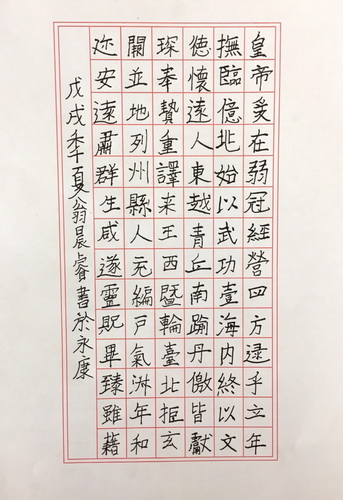 皇帝爰在弱冠經營四方逮乎立年
撫臨億兆始以武功壹海内終以文
徳懷遠人東越青丘南踰丹儌皆獻
琛奉贄重譯来王西暨輪臺北拒玄
闕並地列州縣人充編戶氣淋年和
迩安遠肅群生咸遂靈貺畢臻雖藉
戊戌季夏翁晨睿書於永康